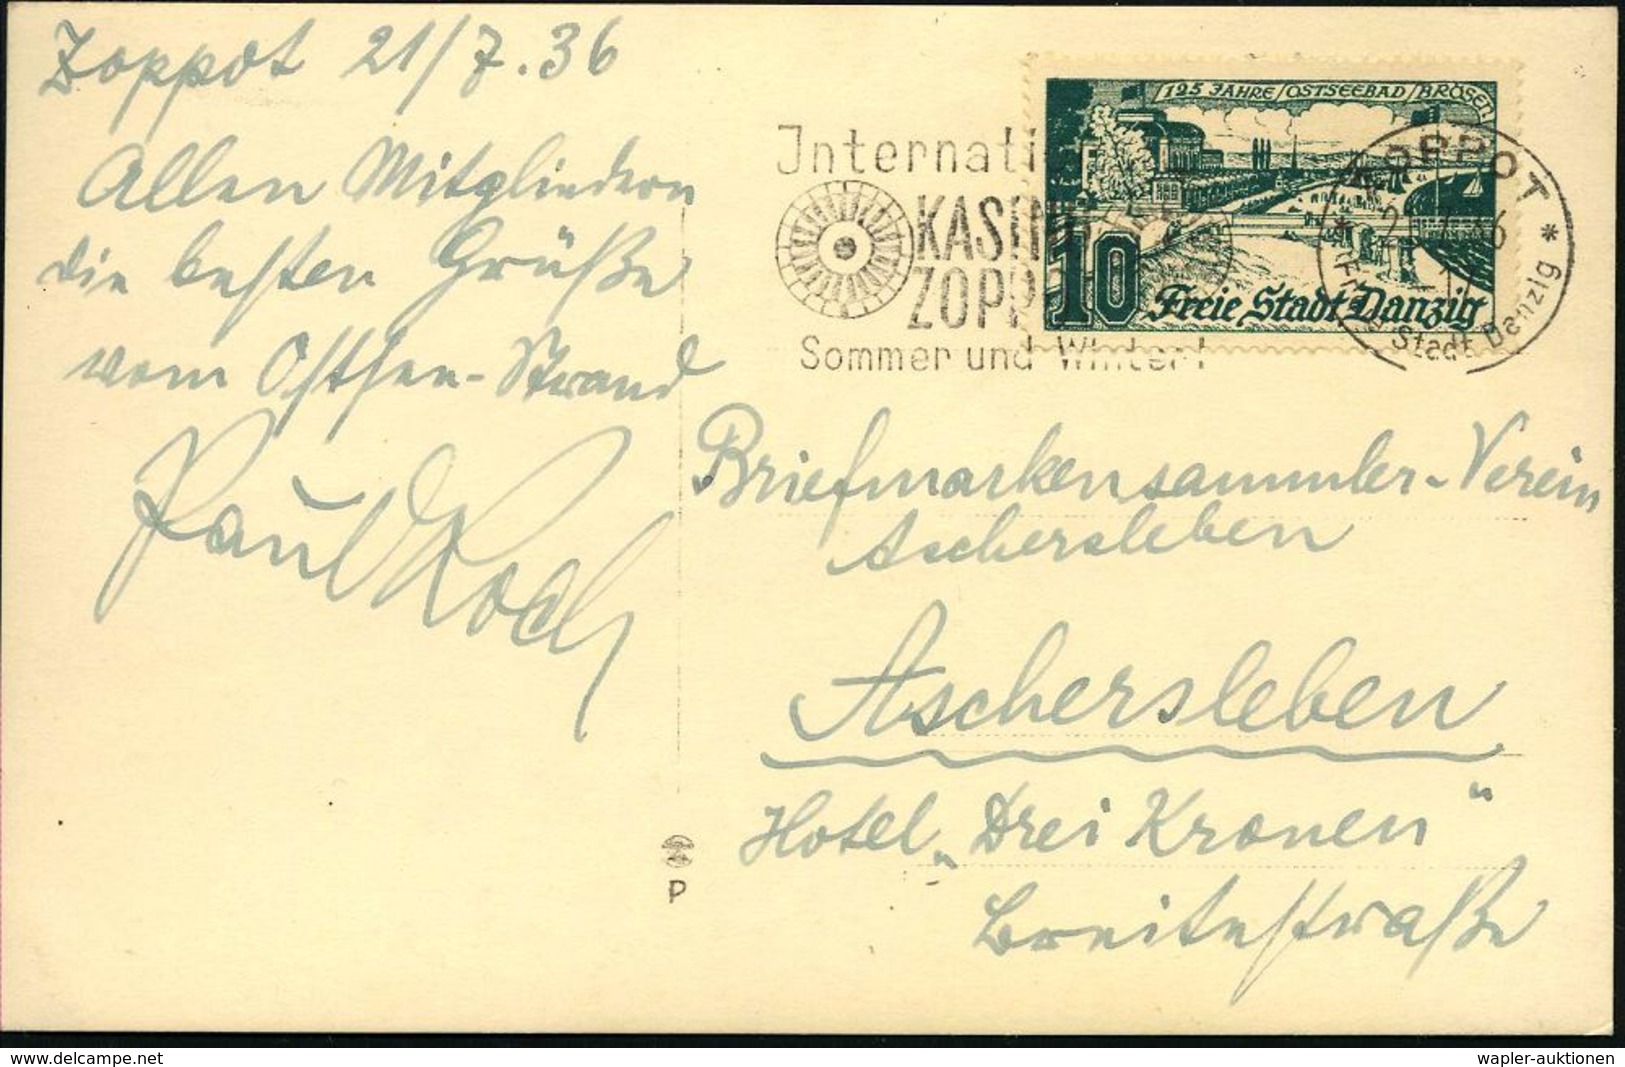 Zoppot 21/7.36
Allen Mitgliedern
die besten Grüße
vom Ostsee-Strand
Paul Koch
Internati
KASINO
ZOPP
Sommer und Winter!
125 JAHRE OSTSEEBAD BRÖSEN
10 Freie Stadt Danzig
ZOPPOT
Stadt Danzig
Briefmarkensammler-Verein
Aschersleben
Aschersleben
Hotel „Drei Kronen"
Breitestraße
P
www.delcampe.net
wapler-auktionen